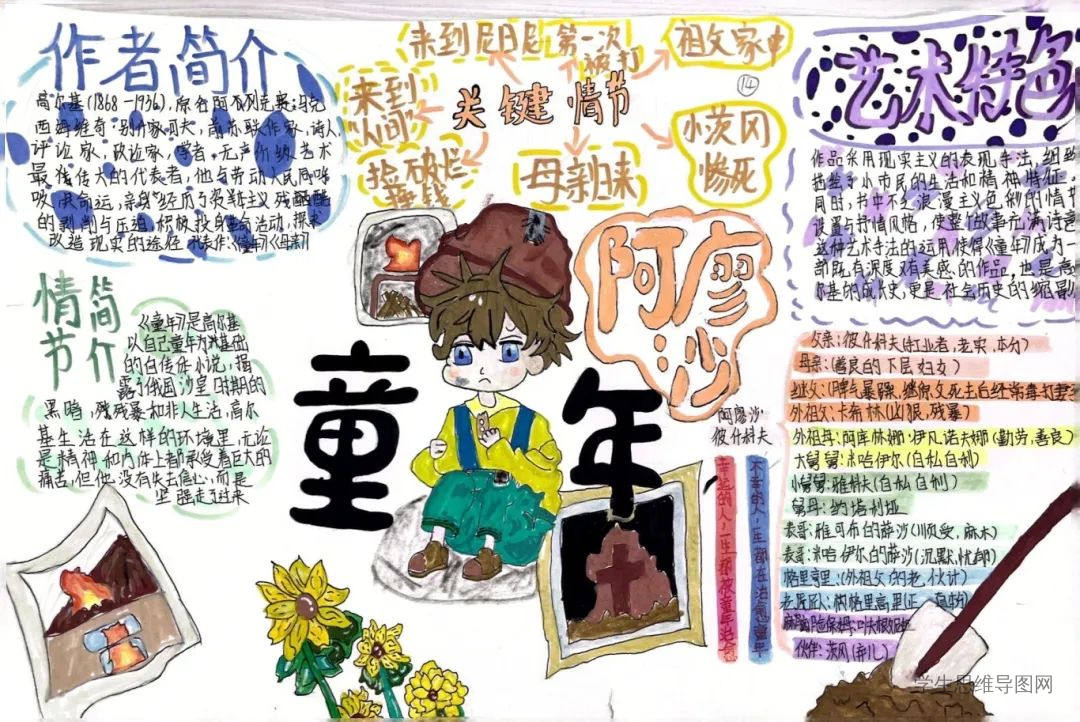 作者简介
高尔基(1868-1936),原名阿列克赛·马克
西姆维奇·别什家可夫,前苏联作家,诗人,
评论家,政论家,学者,无产阶级艺术
最伟大的代表者,他与劳动人民同呼
吸,共命运,亲身经历了资料主义残酷
的剥削与压迫,积极投身革命活动,探求
改造现实的途径。代表作:《童年》《母亲》
情节
简介
《童年》是高尔基
以自己童年为基础
的自传体小说,揭
露了俄国沙皇时期的
黑暗,残暴和非人生活,高尔
基生活在这样的环境里,无论
是精神和肉体上都承受着巨大的
痛苦,但他没有失去信心,而是
坚强走了过来
关键情节
来到尼日尼
第一次
被打
祖父家中
⑭
来到
"人间"
捡破烂
母亲归来
小茨冈
惨死
阿廖沙
童年
阿廖沙
彼什科夫
幸运的人,一生都被童年治愈
不幸的人,一生都在治愈童年
艺术特色
作品采用现实主义的表现手法,细致
描绘了小市民的生活和精神特征,
同时,书中不乏浪漫主义色彩的情节
设置与抒情风格,使整个故事充满诗意
这种艺术手法的运用使得《童年》成为一
部既有深度又有美感的作品,也是高
尔基的成长史,更是社会历史的缩影
父亲:彼什科夫(红业者,老实,本分)
母亲:(善良的下层妇女)
继父:(脾气暴躁,继外父死去后经常毒打妻子
外祖父:卡希林(凶狠,残暴)
外祖母:阿库林娜·伊凡诺夫娜(勤劳,善良)
大舅舅:米哈伊尔(自私自利)
小舅舅:雅科夫(自私自利)
舅母:纳塔利娅
表哥:雅可布的萨沙(顺受,麻木)
表哥:米哈伊尔的萨沙(沉默,忧郁)
格里高里:(外祖父的老伙计)
伙伴:茨冈(弃儿)
学生思维导图网